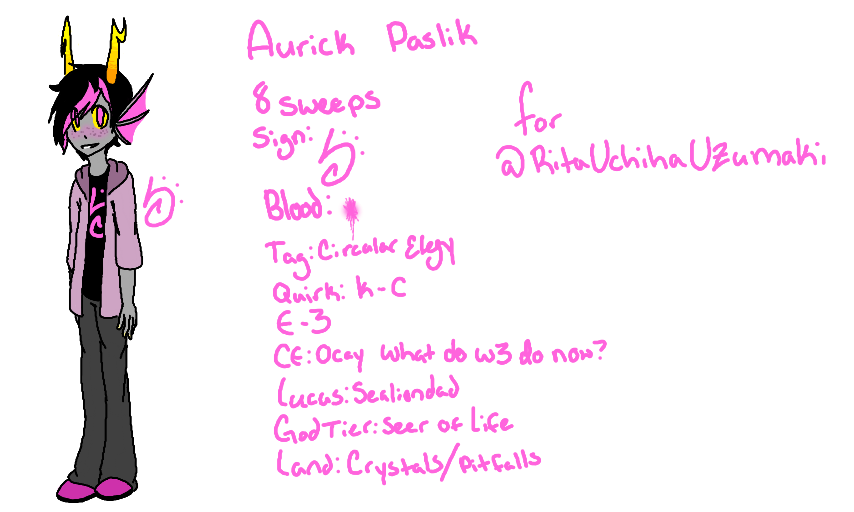 Aurick Paslik
8 sweeps
Sign:
Blood:
Tag: Circular Elegy
Quirk: K-C
E-3
CE: Ocay what do w3 do now?
Lucus: Sealiondad
God Tier: Seer of Life
Land: Crystals/Pitfalls
for
@RitaUchihaUzumaki